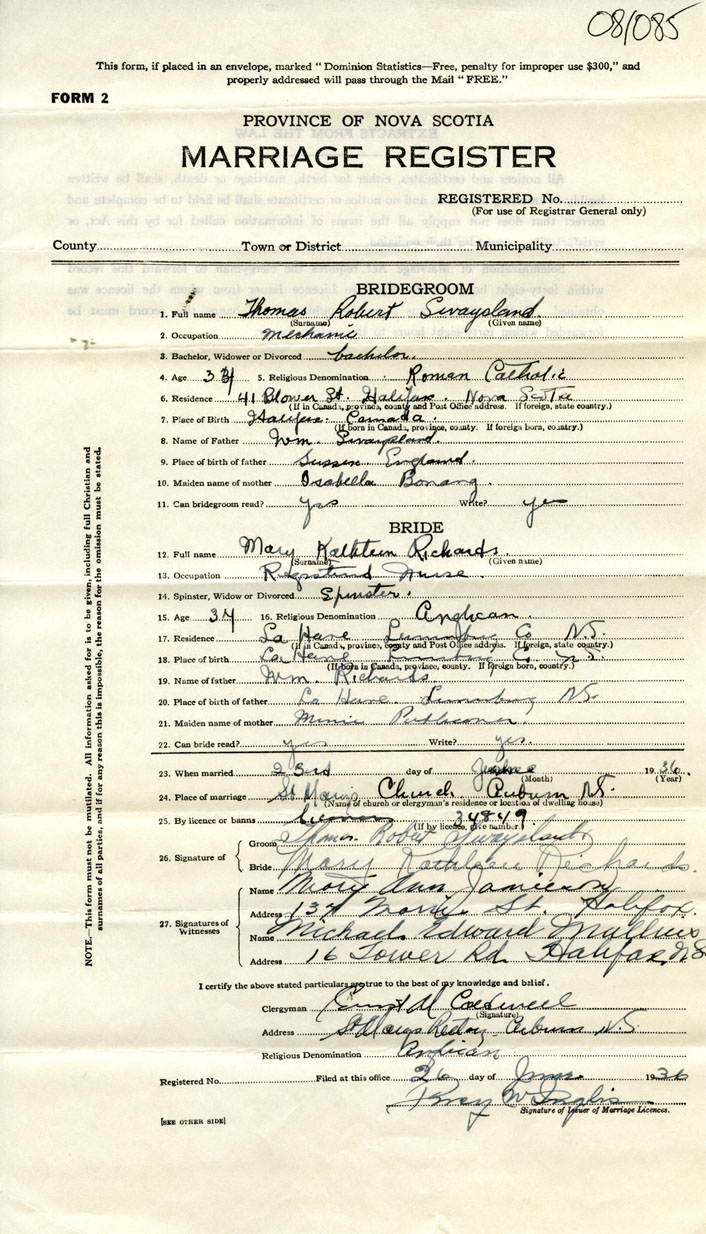 08/085
This form, if placed in an envelope, marked "Dominion Statistics—Free, penalty for improper use $300," and
properly addressed will pass through the Mail "FREE."
FORM 2
PROVINCE OF NOVA SCOTIA
MARRIAGE REGISTER
REGISTERED No.
(For use of Registrar General only)
County Town or District Municipality
BRIDEGROOM
1. Full name Thomas Robert Swaysland
(Surname) (Given name)
2. Occupation mechanic
3. Bachelor, Widower or Divorced bachelor.
4. Age 34 5. Religious Denomination Roman Catholic
6. Residence 41 Blower St. Halifax. Nova Scotia
(If in Canada, province, county and Post Office address. If foreign, state country.)
7. Place of Birth Halifax. Canada.
(If born in Canada, province, county. If foreign born, country.)
8. Name of Father Wm. Swaysland.
9. Place of birth of father Sussex England.
10. Maiden name of mother Isabella Bonang.
11. Can bridegroom read? yes Write? yes
BRIDE
12. Full name Mary Kathleen Richards.
(Surname) (Given name)
13. Occupation Registered Nurse.
14. Spinster, Widow or Divorced Spinster.
15. Age 34 16. Religious Denomination Anglican
17. Residence La Have Lunenburg Co N.S.
(If in Canada, province, county and Post Office address. If foreign, state country.)
18. Place of birth La Have Lunenburg Co. N.S.
(If born in Canada, province, county. If foreign born, country.)
19. Name of father Wm. Richards.
20. Place of birth of father La Have. Lunenburg NS.
21. Maiden name of mother Publicover.
22. Can bride read? yes Write? yes.
23. When married 23rd day of June 1936.
(Month) (Year)
24. Place of marriage St Mary's Church. Auburn N.S.
(Name of church or clergyman's residence or location of dwelling house)
25. By licence or banns Licence 34849
(If by licence, give number.)
26. Signature of
Groom Thomas Robert Swaysland
Bride Mary Kathleen Richards.
27. Signatures of Witnesses
Name Mary Ann Jamieson
Address 134 Morris St Halifax.
Name Michael Edward Mullins
Address 16 Tower Rd. Halifax, N.S
I certify the above stated particulars are true to the best of my knowledge and belief.
Clergyman Ernest M Caldwell
(Signature)
Address St Marys Rectory Auburn N.S.
Religious Denomination Anglican
Registered No. Filed at this office 26 day of June 1936
Percy W Inglis
Signature of Issuer of Marriage Licences.
[SEE OTHER SIDE]
NOTE.—This form must not be mutilated. All information asked for is to be given, including full Christian and
surnames of all parties, and if for any reason this is impossible, the reason for the omission must be stated.